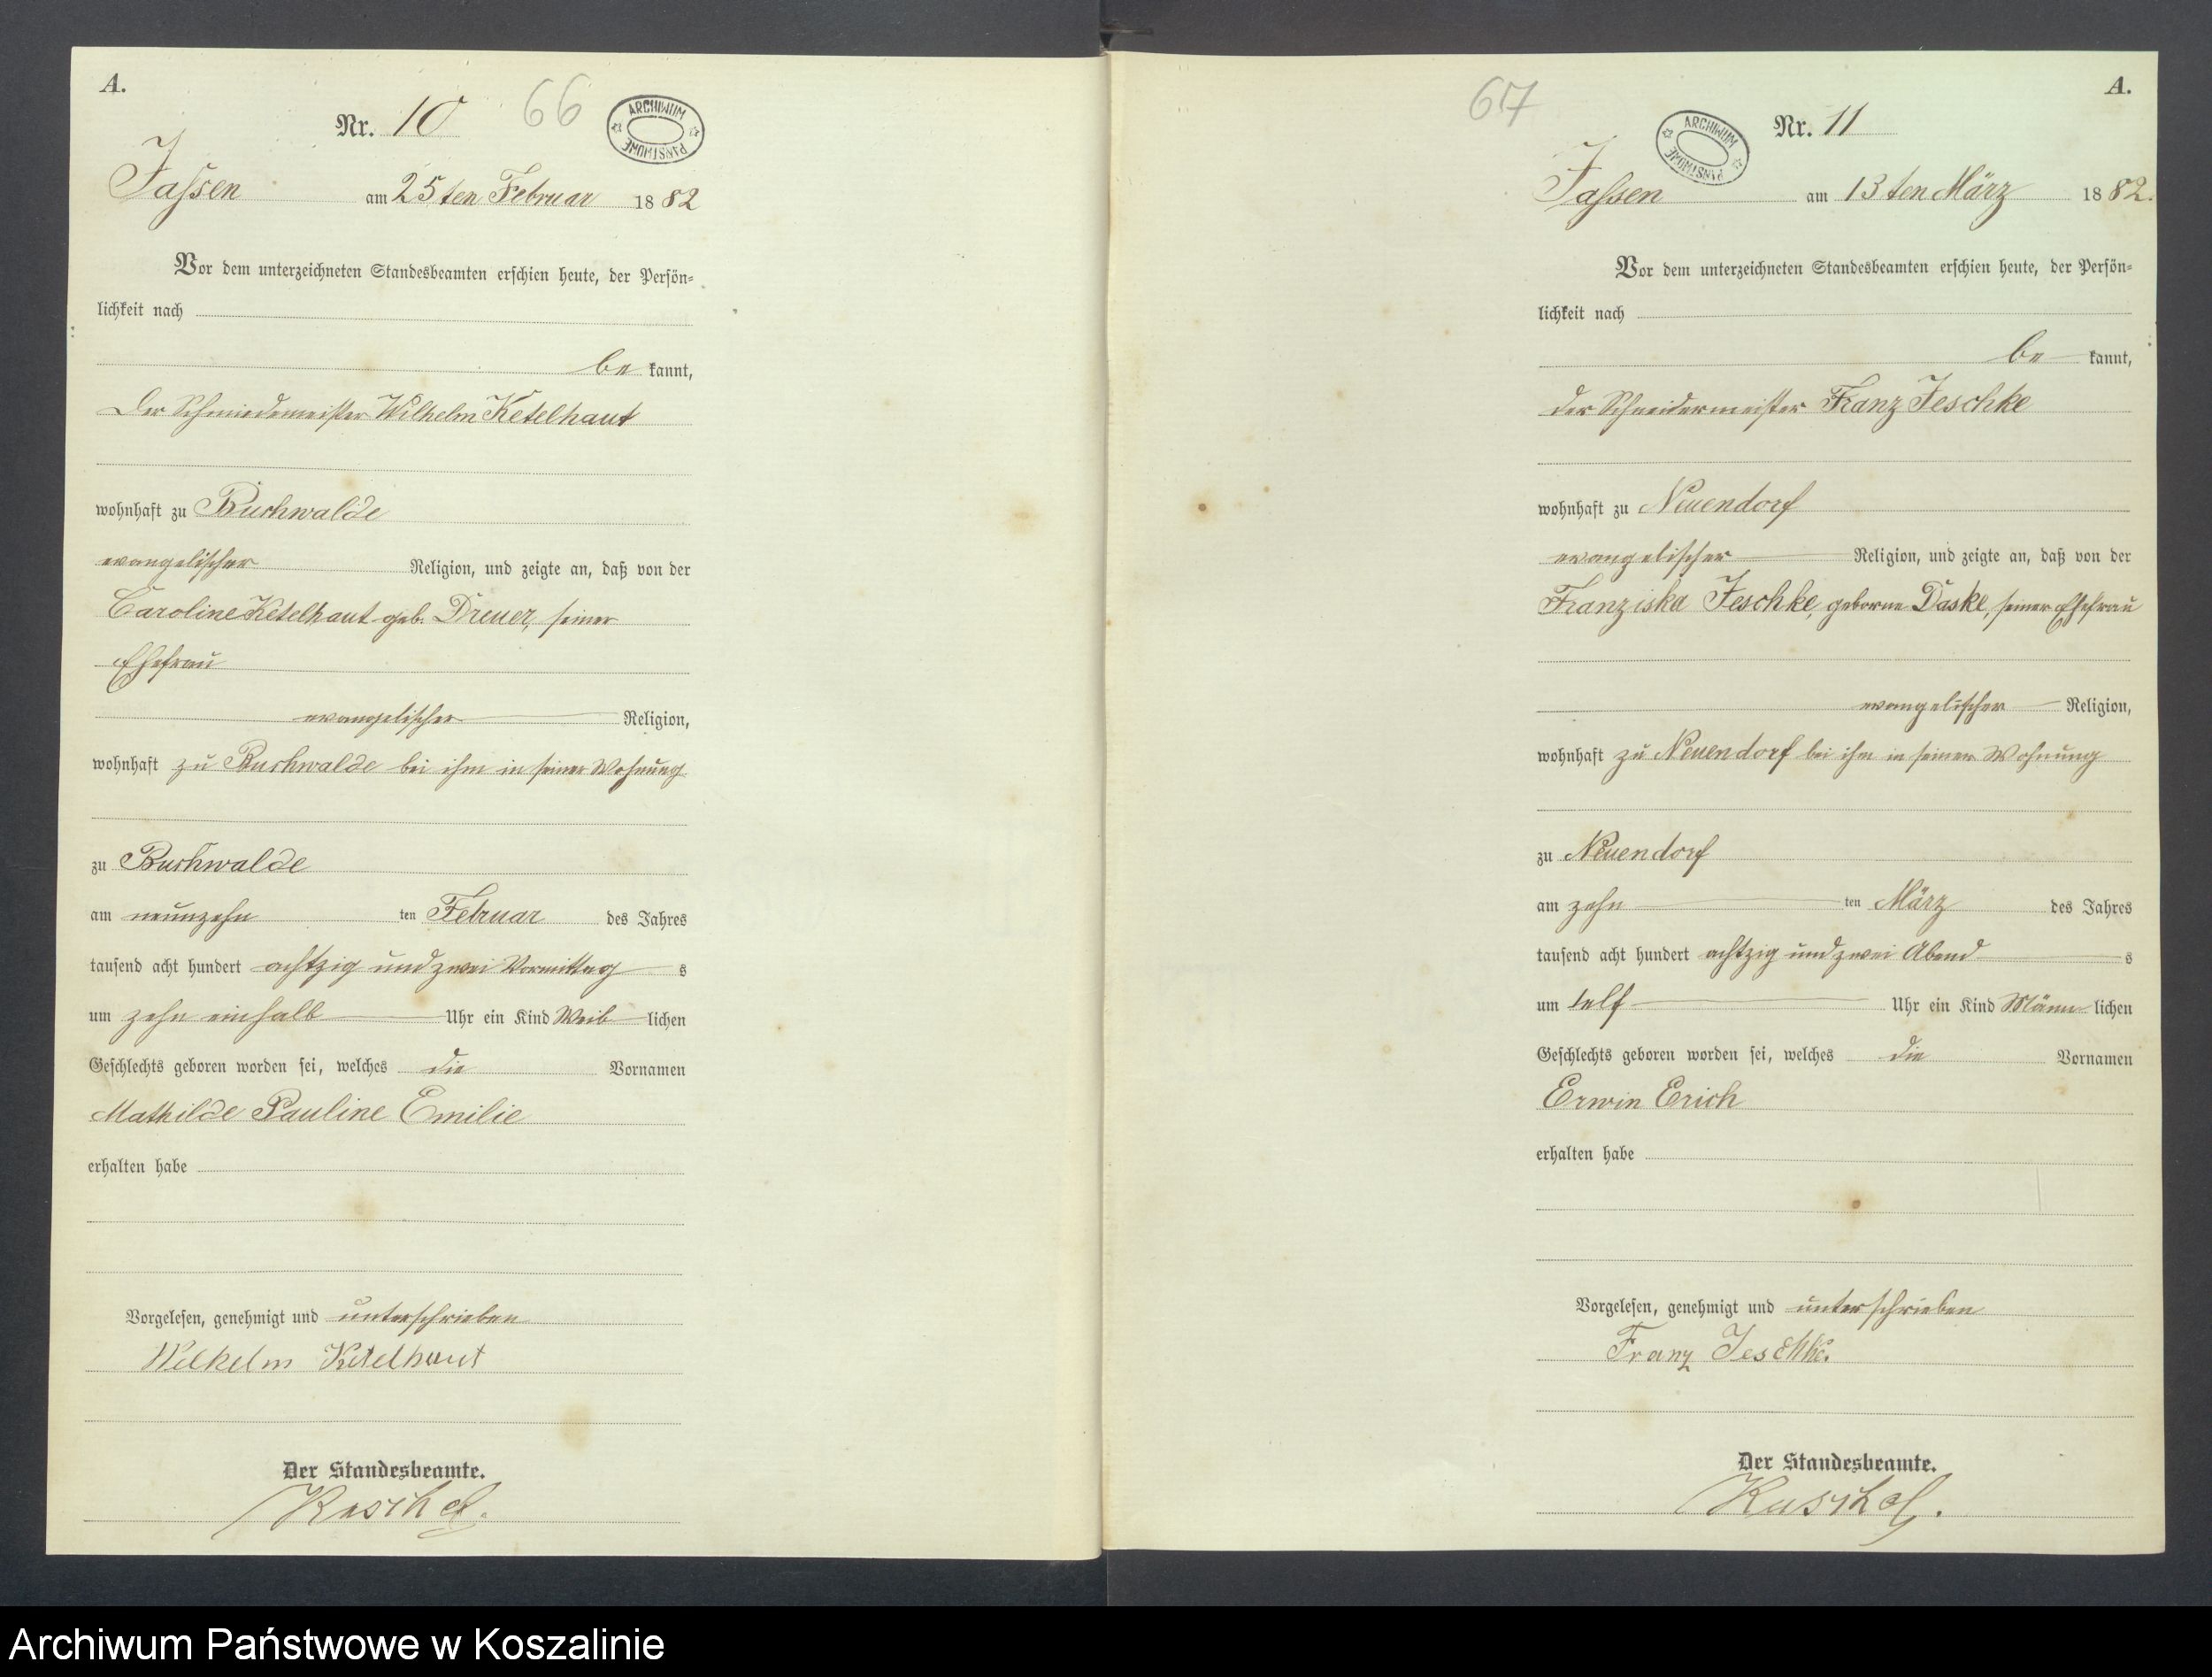 A.
Nr. 10 66
ARCHIWUM PAŃSTWOWE
Jassen am 25ten Februar 1882
Vor dem unterzeichneten Standesbeamten erschien heute, der Persön-
lichkeit nach
be kannt,
Der Schmiedemeister Wilhelm Ketelhaut
wohnhaft zu Buchwalde
evangelischer Religion, und zeigte an, daß von der
Caroline Ketelhaut geb. Dreuer, seiner
Ehefrau
evangelischer Religion,
wohnhaft zu Buchwalde bei ihm in seiner Wohnung
zu Buchwalde
am neunzehn ten Februar des Jahres
tausend acht hundert achtzig und zwei Vormittag s
um zehn einhalb Uhr ein Kind Weib lichen
Geschlechts geboren worden sei, welches die Vornamen
Mathilde Pauline Emilie
erhalten habe
Vorgelesen, genehmigt und unterschrieben
Wilhelm Ketelhaut
Der Standesbeamte.
A.
67 Nr. 11
ARCHIWUM PAŃSTWOWE
Jassen am 13ten März 1882.
Vor dem unterzeichneten Standesbeamten erschien heute, der Persön-
lichkeit nach
be kannt,
der Schneidermeister Franz Jeschke
wohnhaft zu Neuendorf
evangelischer Religion, und zeigte an, daß von der
Franziska Jeschke, geborne Daske, seiner Ehefrau
evangelischer Religion,
wohnhaft zu Neuendorf bei ihm in seiner Wohnung
zu Neuendorf
am zehn ten März des Jahres
tausend acht hundert achtzig und zwei Abend s
um elf Uhr ein Kind Männ lichen
Geschlechts geboren worden sei, welches die Vornamen
Erwin Erich
erhalten habe
Vorgelesen, genehmigt und unterschrieben
Franz Jeschke.
Der Standesbeamte.
Archiwum Państwowe w Koszalinie